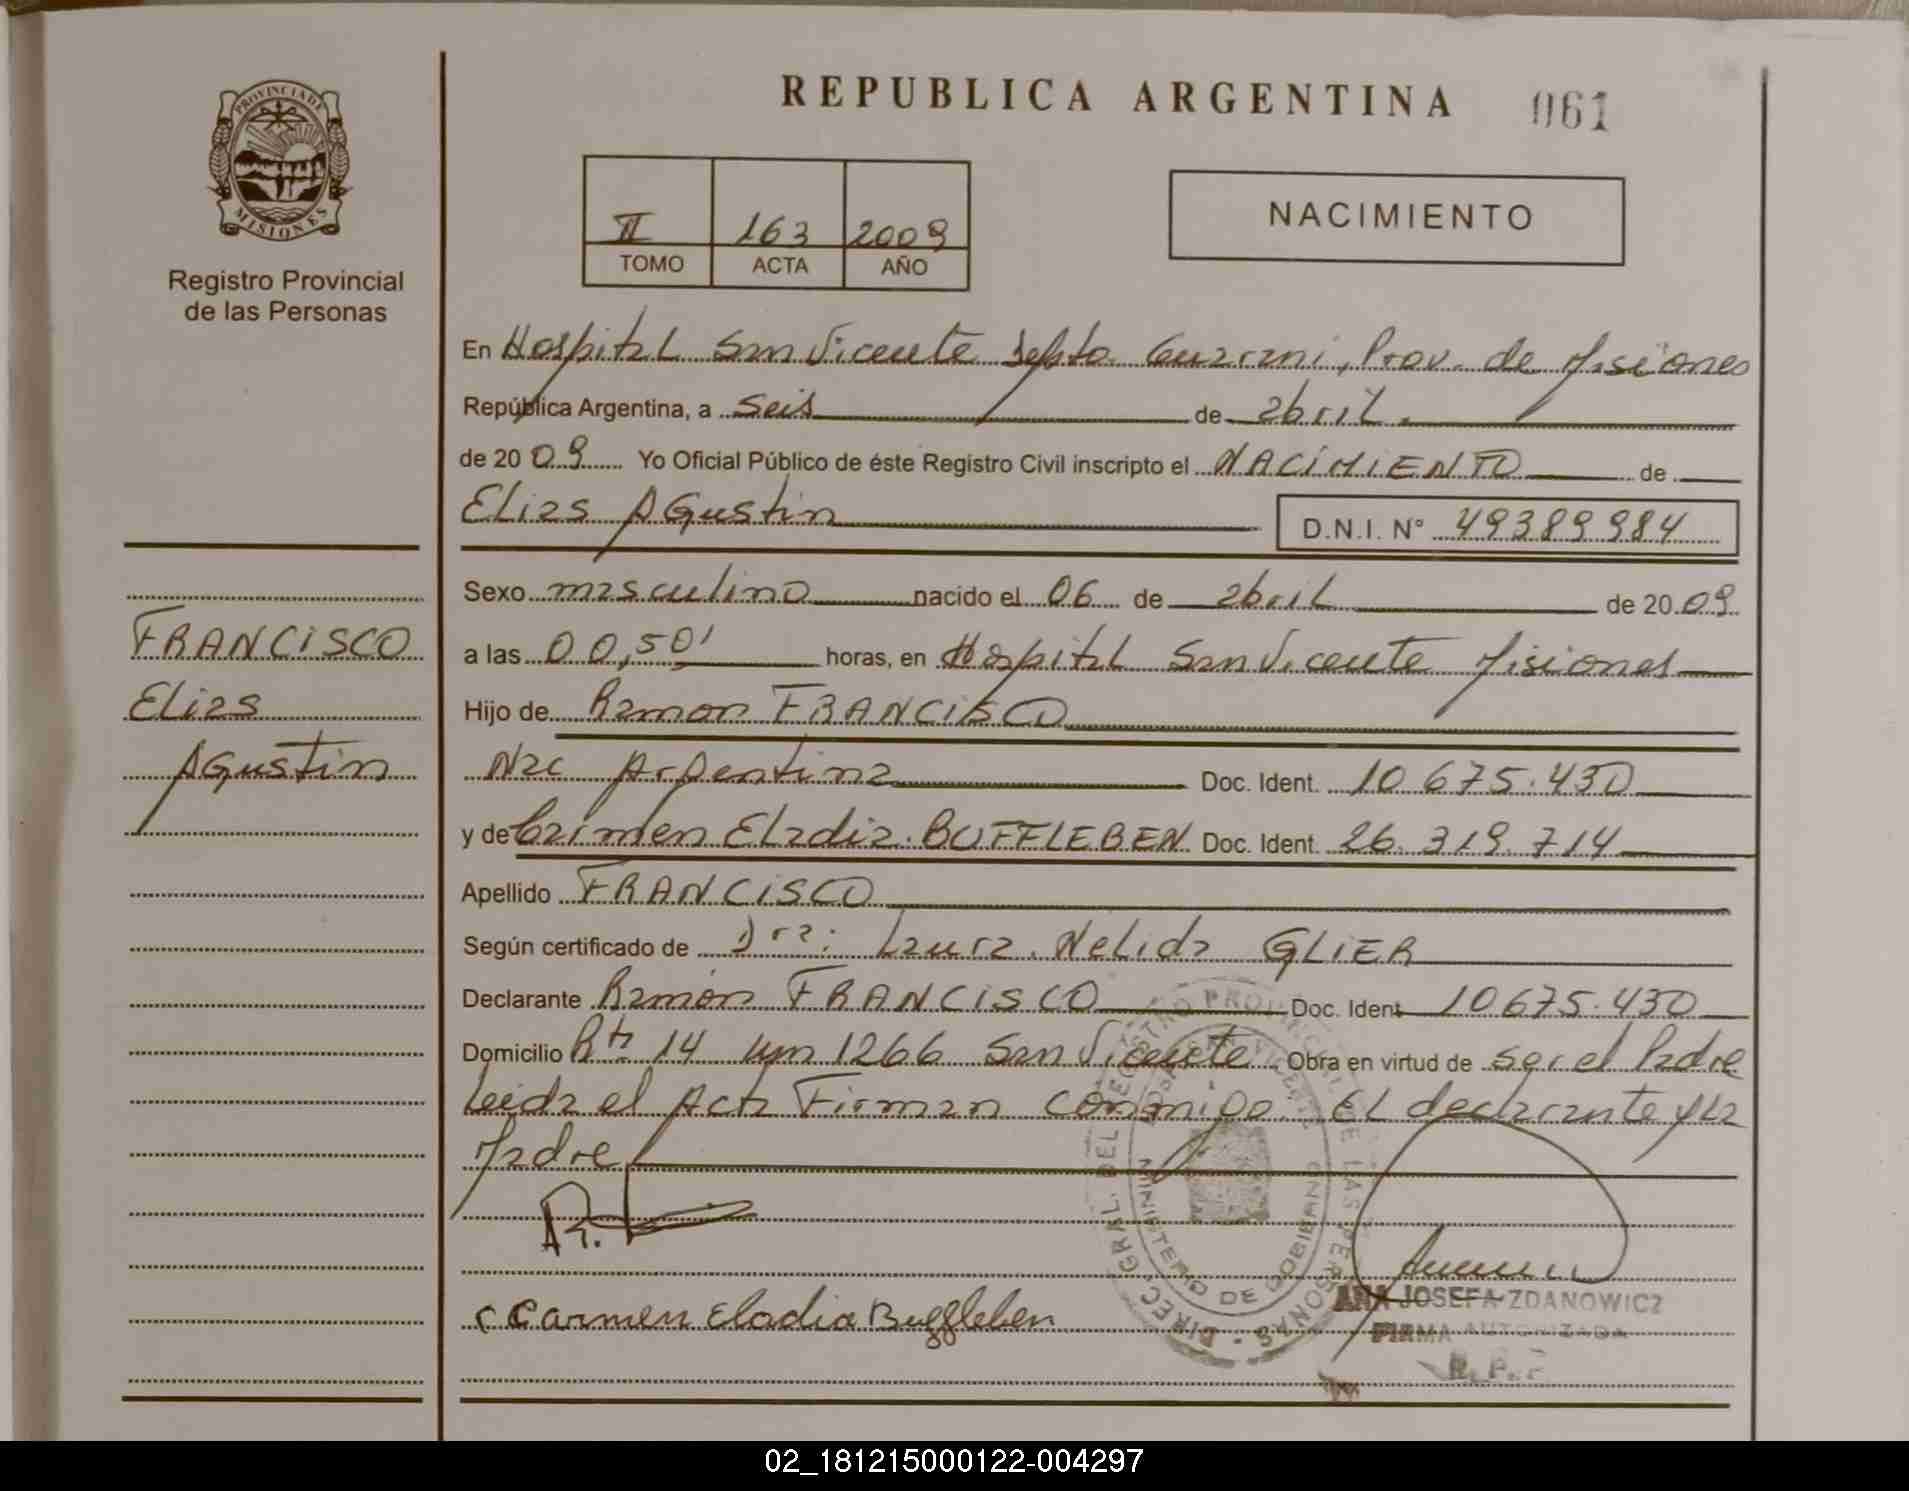 REPUBLICA ARGENTINA 061
PROVINCIA DE
MISIONES
Registro Provincial
de las Personas
II 163 2009
TOMO ACTA AÑO
NACIMIENTO
En Hospital San Vicente Depto Guarani, Prov. de Misiones
República Argentina, a Seis de abril
de 2009 Yo Oficial Público de éste Registro Civil inscripto el NACIMIENTO de
Elias AGustin D.N.I. N° 49389984
Sexo masculino nacido el 06 de abril de 2009
FRANCISCO
Elias
AGustin
a las 00,50' horas, en Hospital San Vicente Misiones
Hijo de Ramon FRANCISCO
Nac Argentina Doc. Ident. 10 675.430
y de Carmen Eladia BUFFLEBEN Doc. Ident. 26.319.714
Apellido FRANCISCO
Según certificado de Dra: Laura Nelida GLIER
Declarante Ramón FRANCISCO Doc. Ident 10675.430
Domicilio Rta 14 km 1266 San Vicente Obra en virtud de ser el Padre
Leida el Acta Firman conmigo. El declarante y la
Madre
Carmen Eladia Buffleben
DIREC. GRAL. DEL REGISTRO PROVINCIAL DE LAS PERSONAS
MINISTERIO DE GOBIERNO
ANA JOSEFA ZDANOWICZ
FIRMA AUTORIZADA
R.P.P
02_181215000122-004297